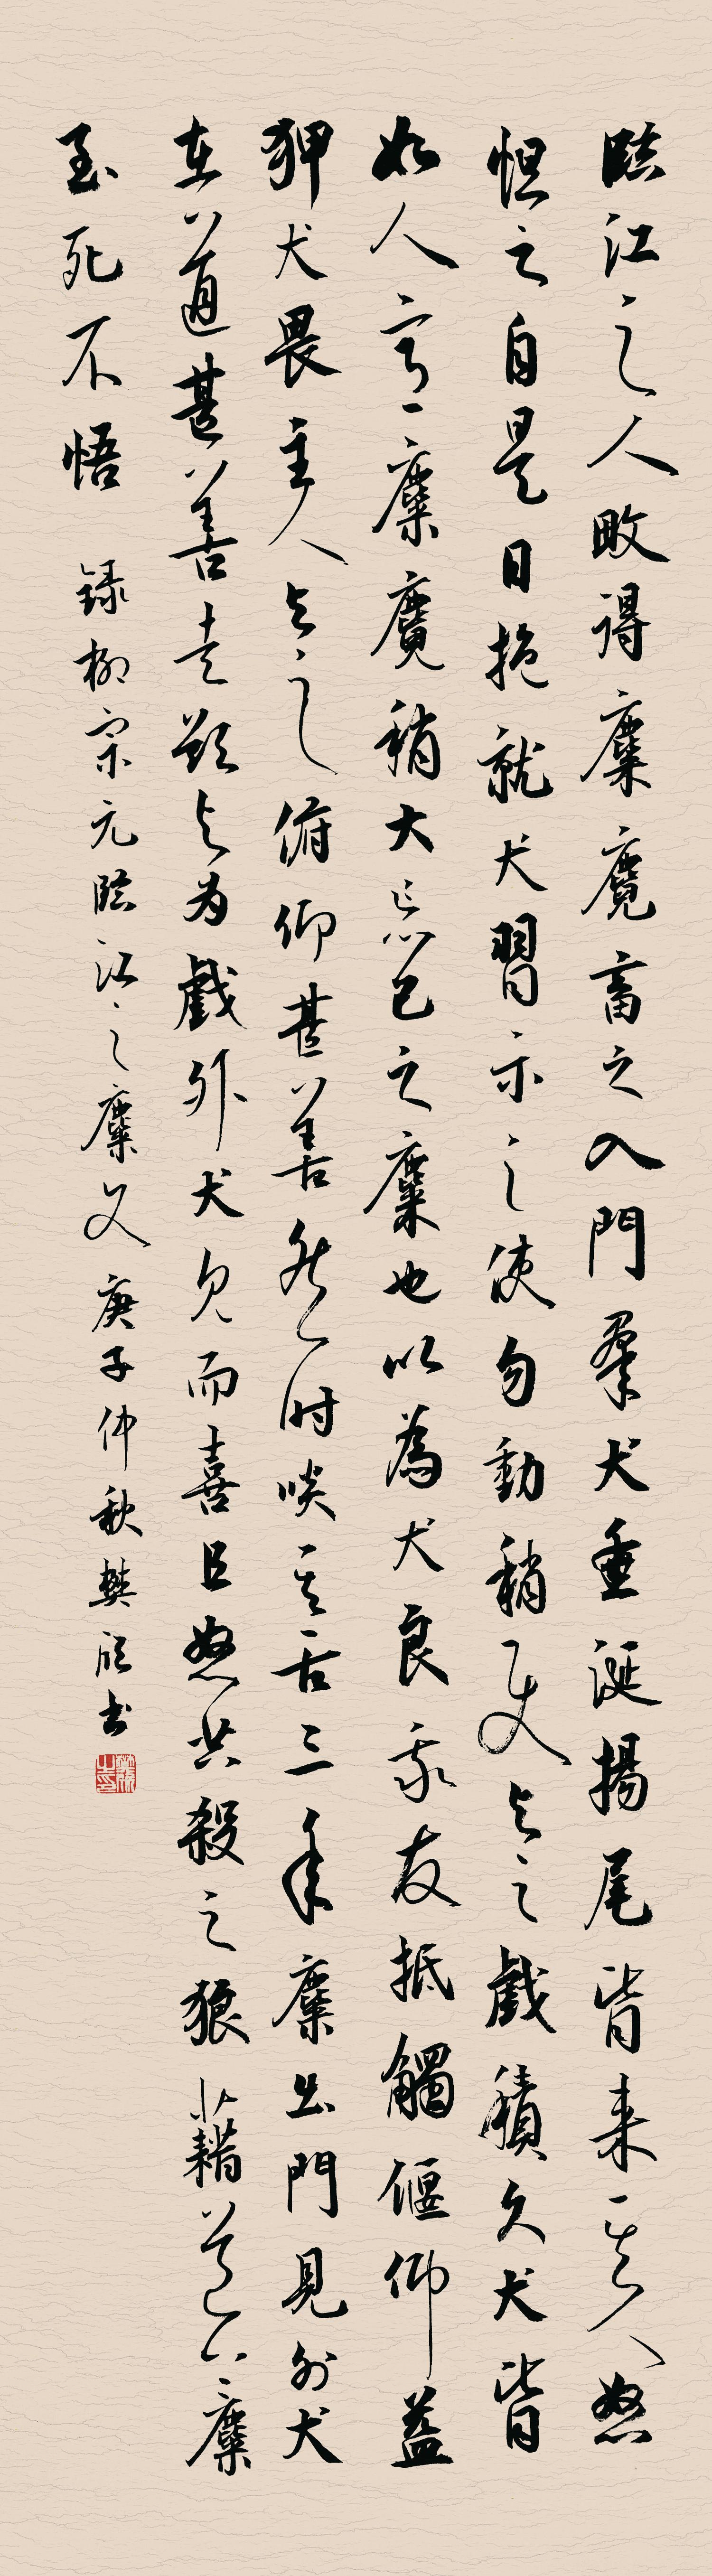 臨江之人畋得麋麑畜之入門羣犬垂涎揚尾皆来其人怒
怛之自是日抱就犬習示之使勿動稍使與之戲積久犬皆
如人意麋麑稍大忘己之麋也以為犬良我友抵觸偃仰益
狎犬畏主人與之俯仰甚善然時啖其舌三年麋出門見外犬
在道甚善走欲與为戲外犬見而喜且怒共殺之狼藉道上麋
至死不悟 録柳宗元臨江之麋文 庚子仲秋樊欣书